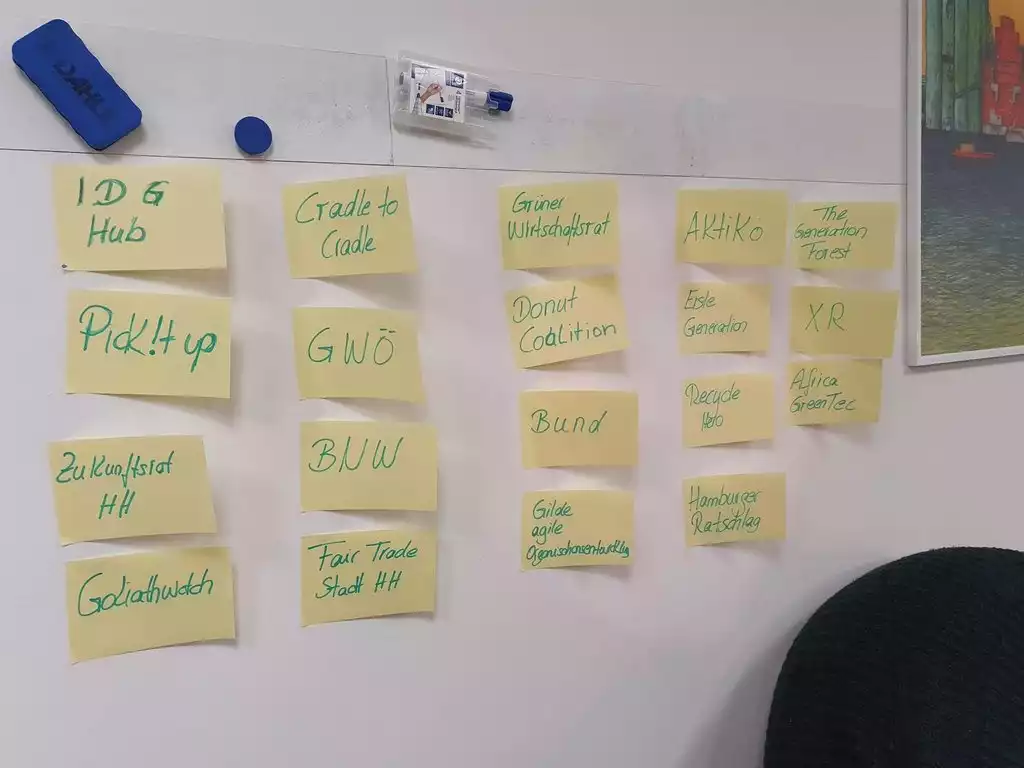 DAHLE
IDG
Hub
Pick!t up
Zukunftsrat
HH
Goliathwatch
Cradle to
Cradle
GWÖ
BNW
Fair Trade
Stadt HH
Grüner
Wirtschaftsrat
Donut
Coalition
Bund
Gilde
agile
Organisationsentwicklung
AKtiKo
Eisle
Generation
Recycle
Hero
Hamburger
Ratschlag
The
Generation
Forest
XR
Africa
GreenTec